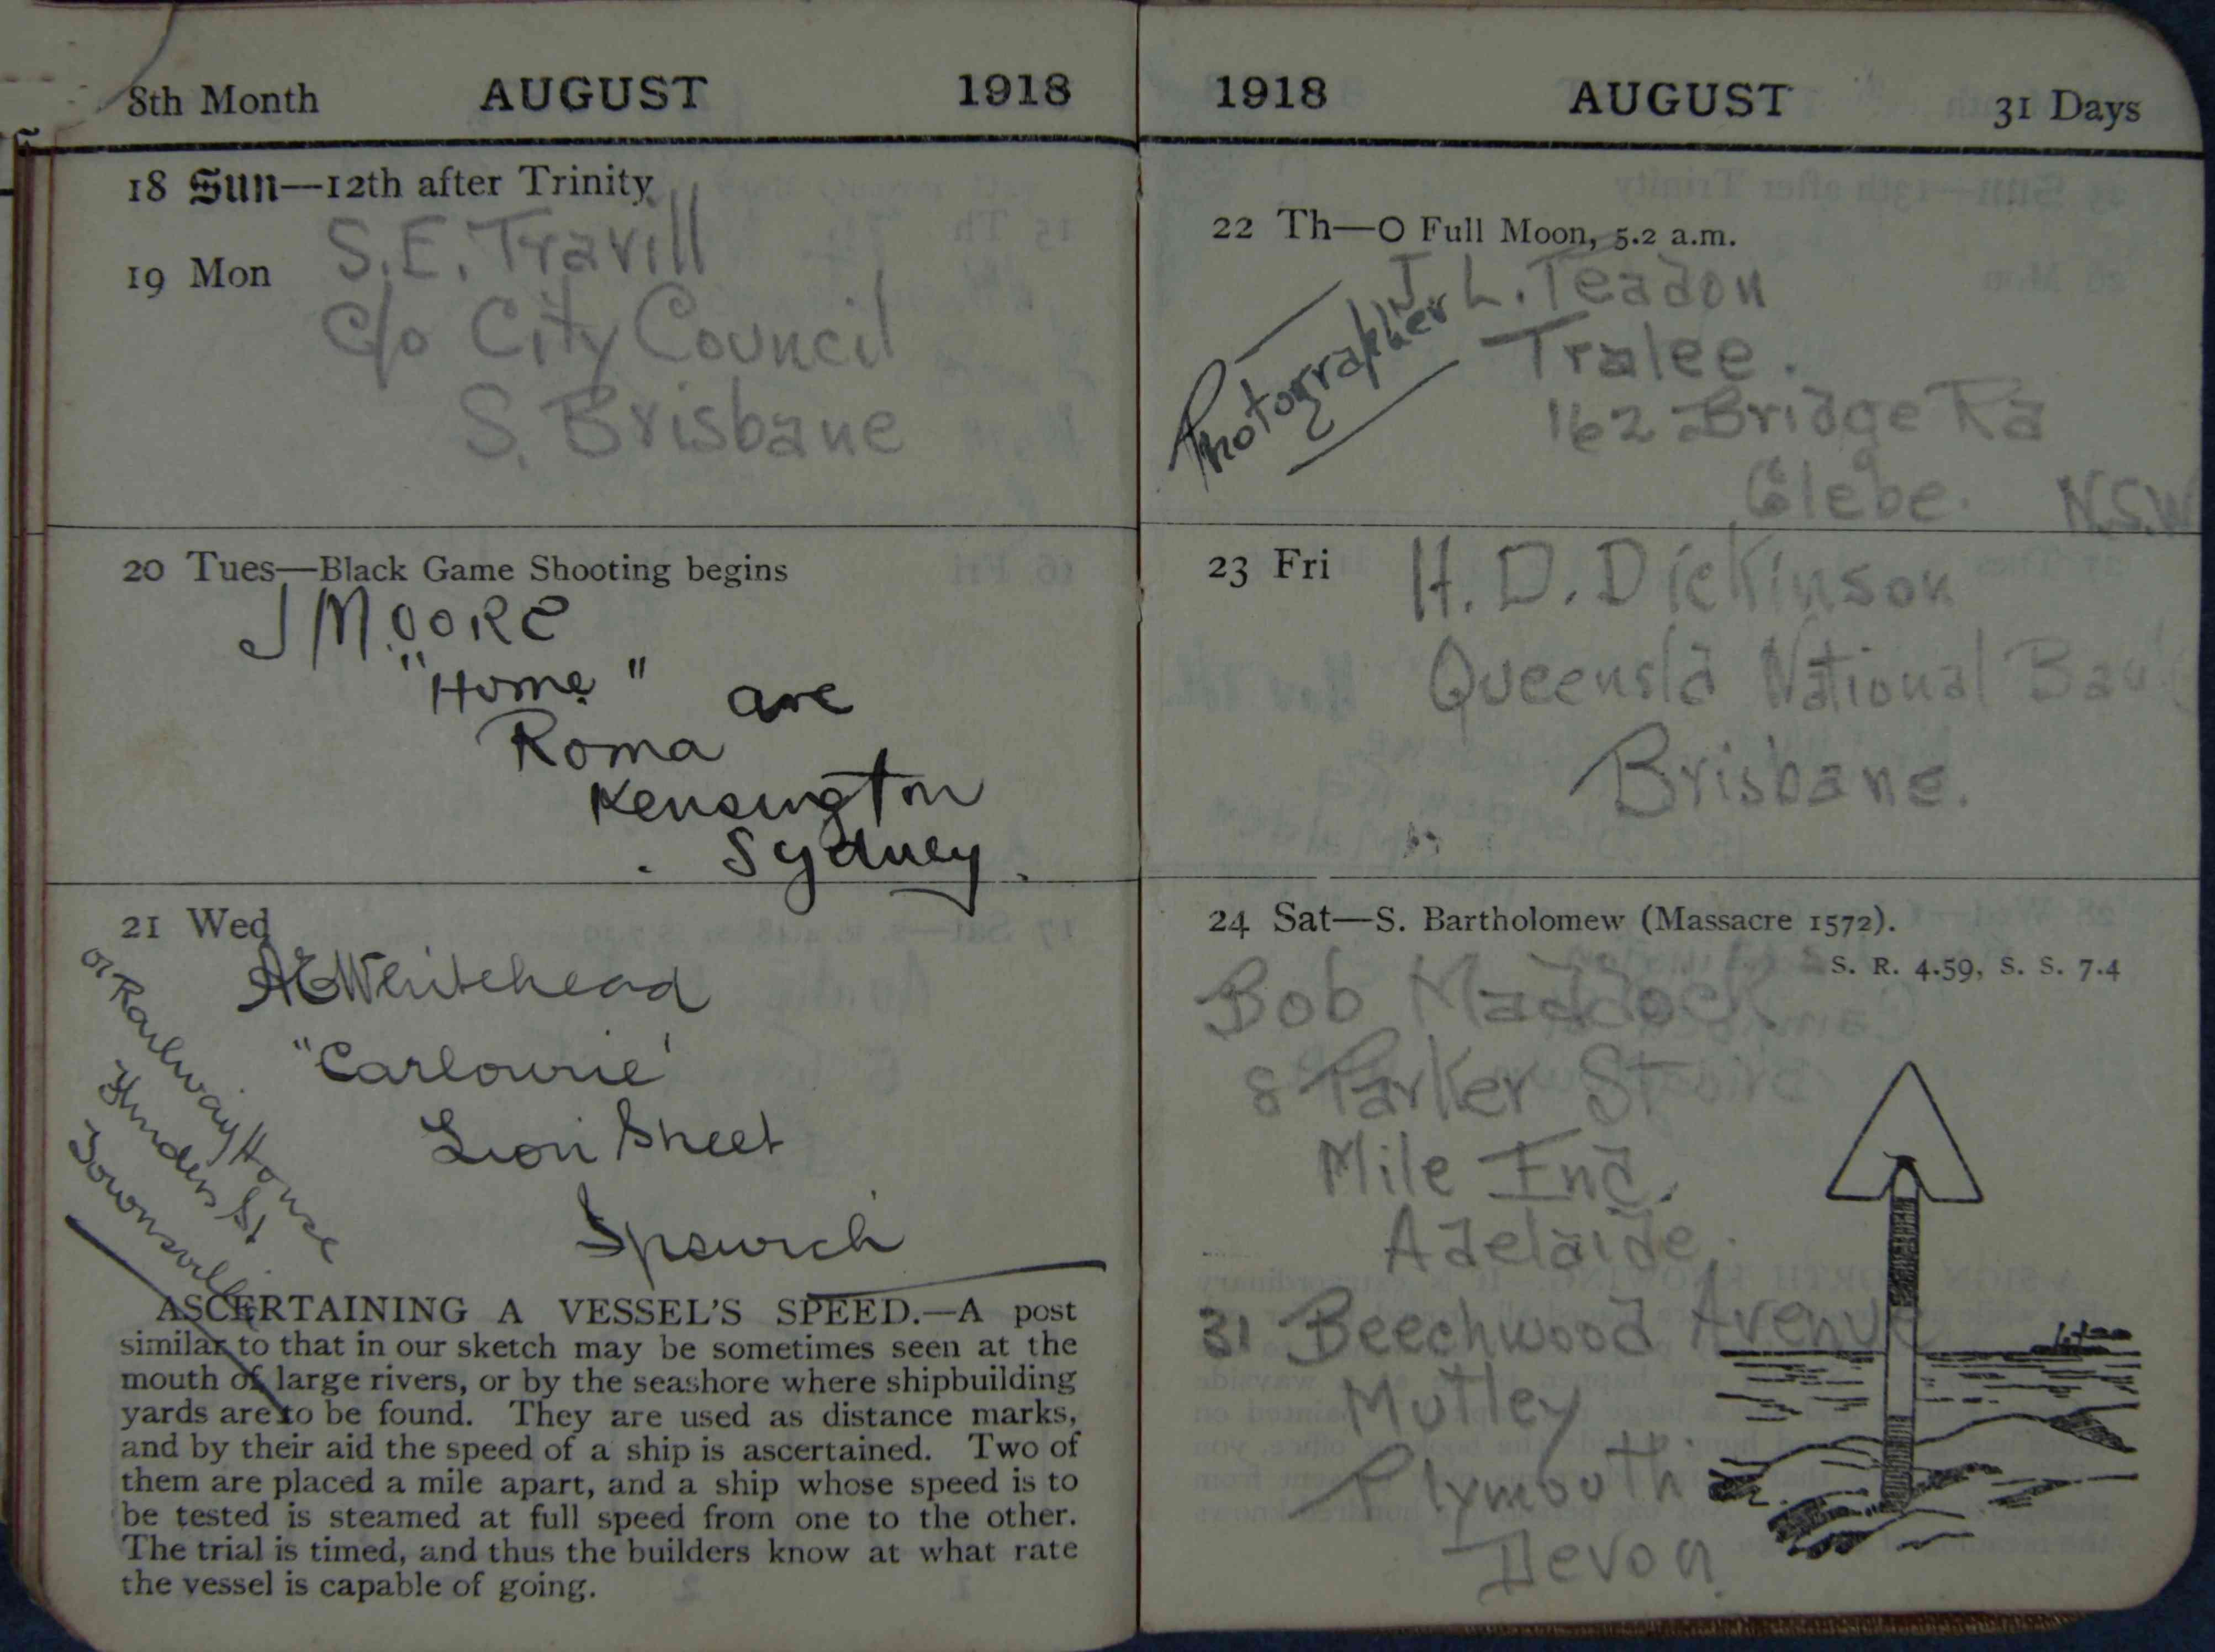 8th Month AUGUST 1918
18 Sun—12th after Trinity
19 Mon
S.E. Travill
c/o City Council
S. Brisbane
20 Tues—Black Game Shooting begins
J MOORE
"Home"
Roma ave
Kensington
Sydney.
21 Wed
AE Whitehead
"Carlowrie'
Lion Street
Ipswich
or Railway House
Flinders St
Townsville
ASCERTAINING A VESSEL'S SPEED.—A post
similar to that in our sketch may be sometimes seen at the
mouth of large rivers, or by the seashore where shipbuilding
yards are to be found. They are used as distance marks,
and by their aid the speed of a ship is ascertained. Two of
them are placed a mile apart, and a ship whose speed is to
be tested is steamed at full speed from one to the other.
The trial is timed, and thus the builders know at what rate
the vessel is capable of going.
1918 AUGUST 31 Days
22 Th—O Full Moon, 5.2 a.m.
Photographer
J. L. Teadon
Tralee.
162 Bridge Rd
Glebe. N.S.W
23 Fri
H. D. Dickinson
Queensld National Bank
Brisbane.
24 Sat—S. Bartholomew (Massacre 1572).
S. R. 4.59, S. S. 7.4
Bob Maddock
8 Parker St
Mile End.
Adelaide.
31 Beechwood Avenue
Mutley
Plymouth
Devon.